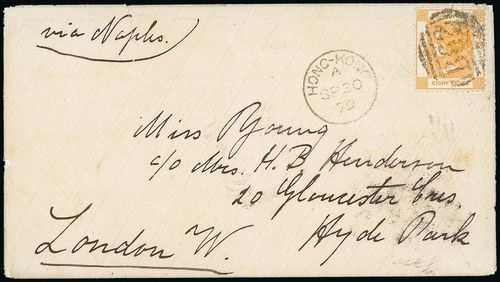 via Naples.
HONG-KONG
A
SP 30
79
EIGHT
Miss Young
c/o Mrs. H. B Henderson
20 Gloucester Cres.
Hyde Park
London W.